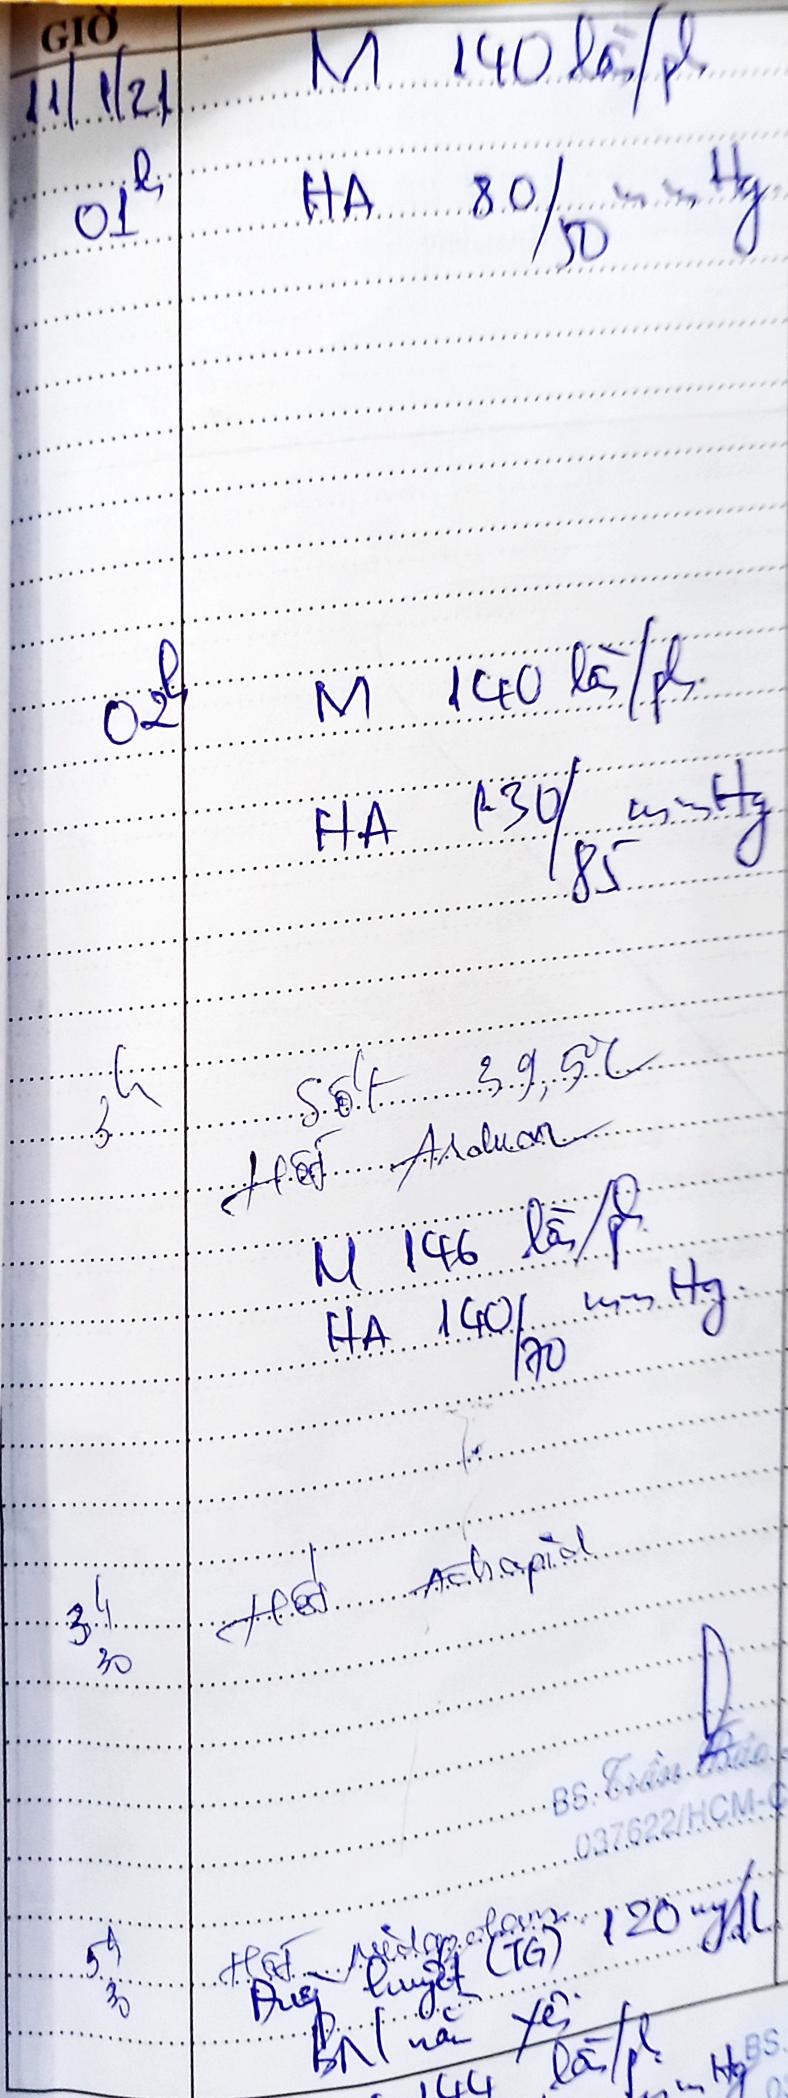 GIỜ
11/1/21 M 140 lần/ph
01h HA 80/50 mmHg
02h M 140 lần/ph
HA 130/85 mmHg
3h Sốt 39,5°C
Hết Arduan
M 146 lần/ph
HA 140/70 mmHg
3h30 Hết Actrapid
BS. Trần
037622/HCM-C
5h30 Hết Midazolam
Đường huyết (TG) 120 mg/dL
BN nằm yên
144 lần/ph
mmHg
BS.